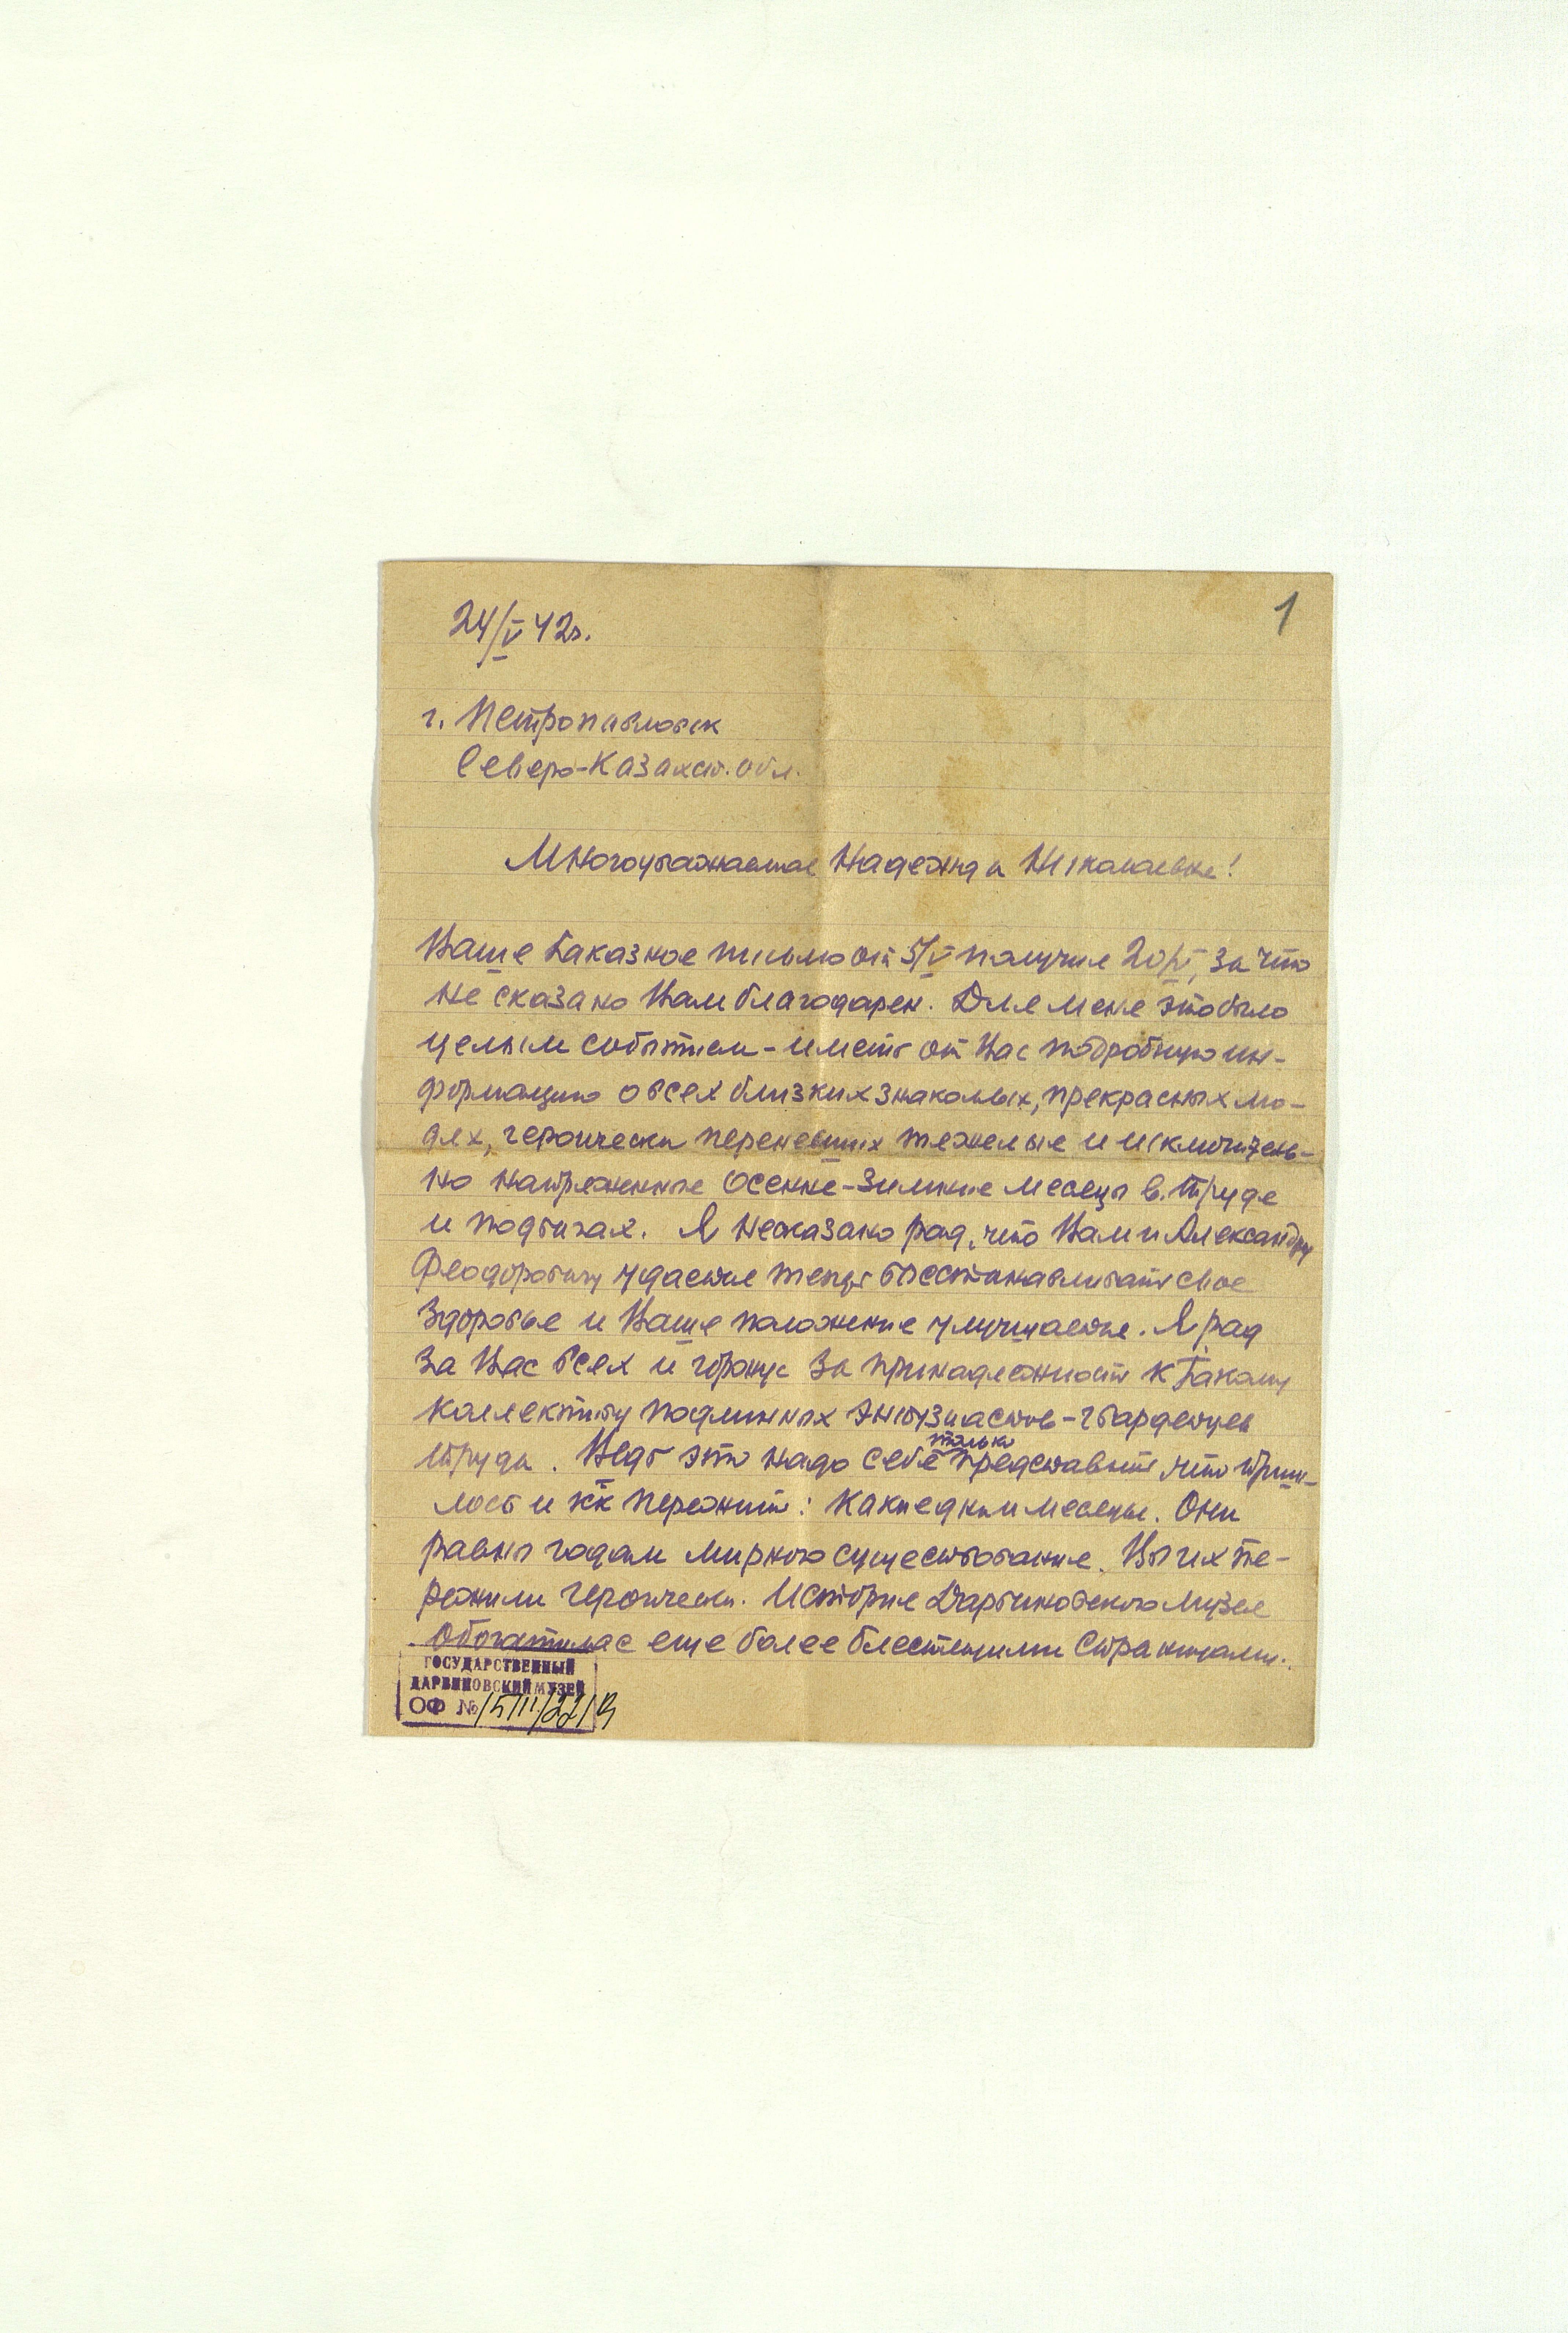 1
24/V 42г.
г. Петропавловск
Северо-Казахст. обл.
Многоуважаемая Надежда Николаевна!
Ваше заказное письмо от 5/V получил 20/V, за что
не сказано Вам благодарен. Для меня это было
целым событием - иметь от Вас подробную ин-
формацию о всех близких знакомых, прекрасных лю-
дях, героически перенесших тяжелые и исключитель-
но напряженные осенне-зимние месяцы в труде
и подвигах. Я несказано рад, что Вам и Александру
Феодоровичу удается теперь восстанавливать свое
здоровье и Ваше положение улучшается. Я рад
за Вас всех и горжусь за принадлежность к такому
коллективу подлинных энтузиастов-гвардейцев
труда. Ведь это надо себе только представить, что приш-
лось и кк пережить: какие дни и месяцы. Они
равны годам мирного существования. Вы их пе-
режили героически. История Дарвиновского музея
обогатилась еще более блестящими страницами.
ГОСУДАРСТВЕННЫЙ
ДАРВИНОВСКИЙ МУЗЕЙ
ОФ №